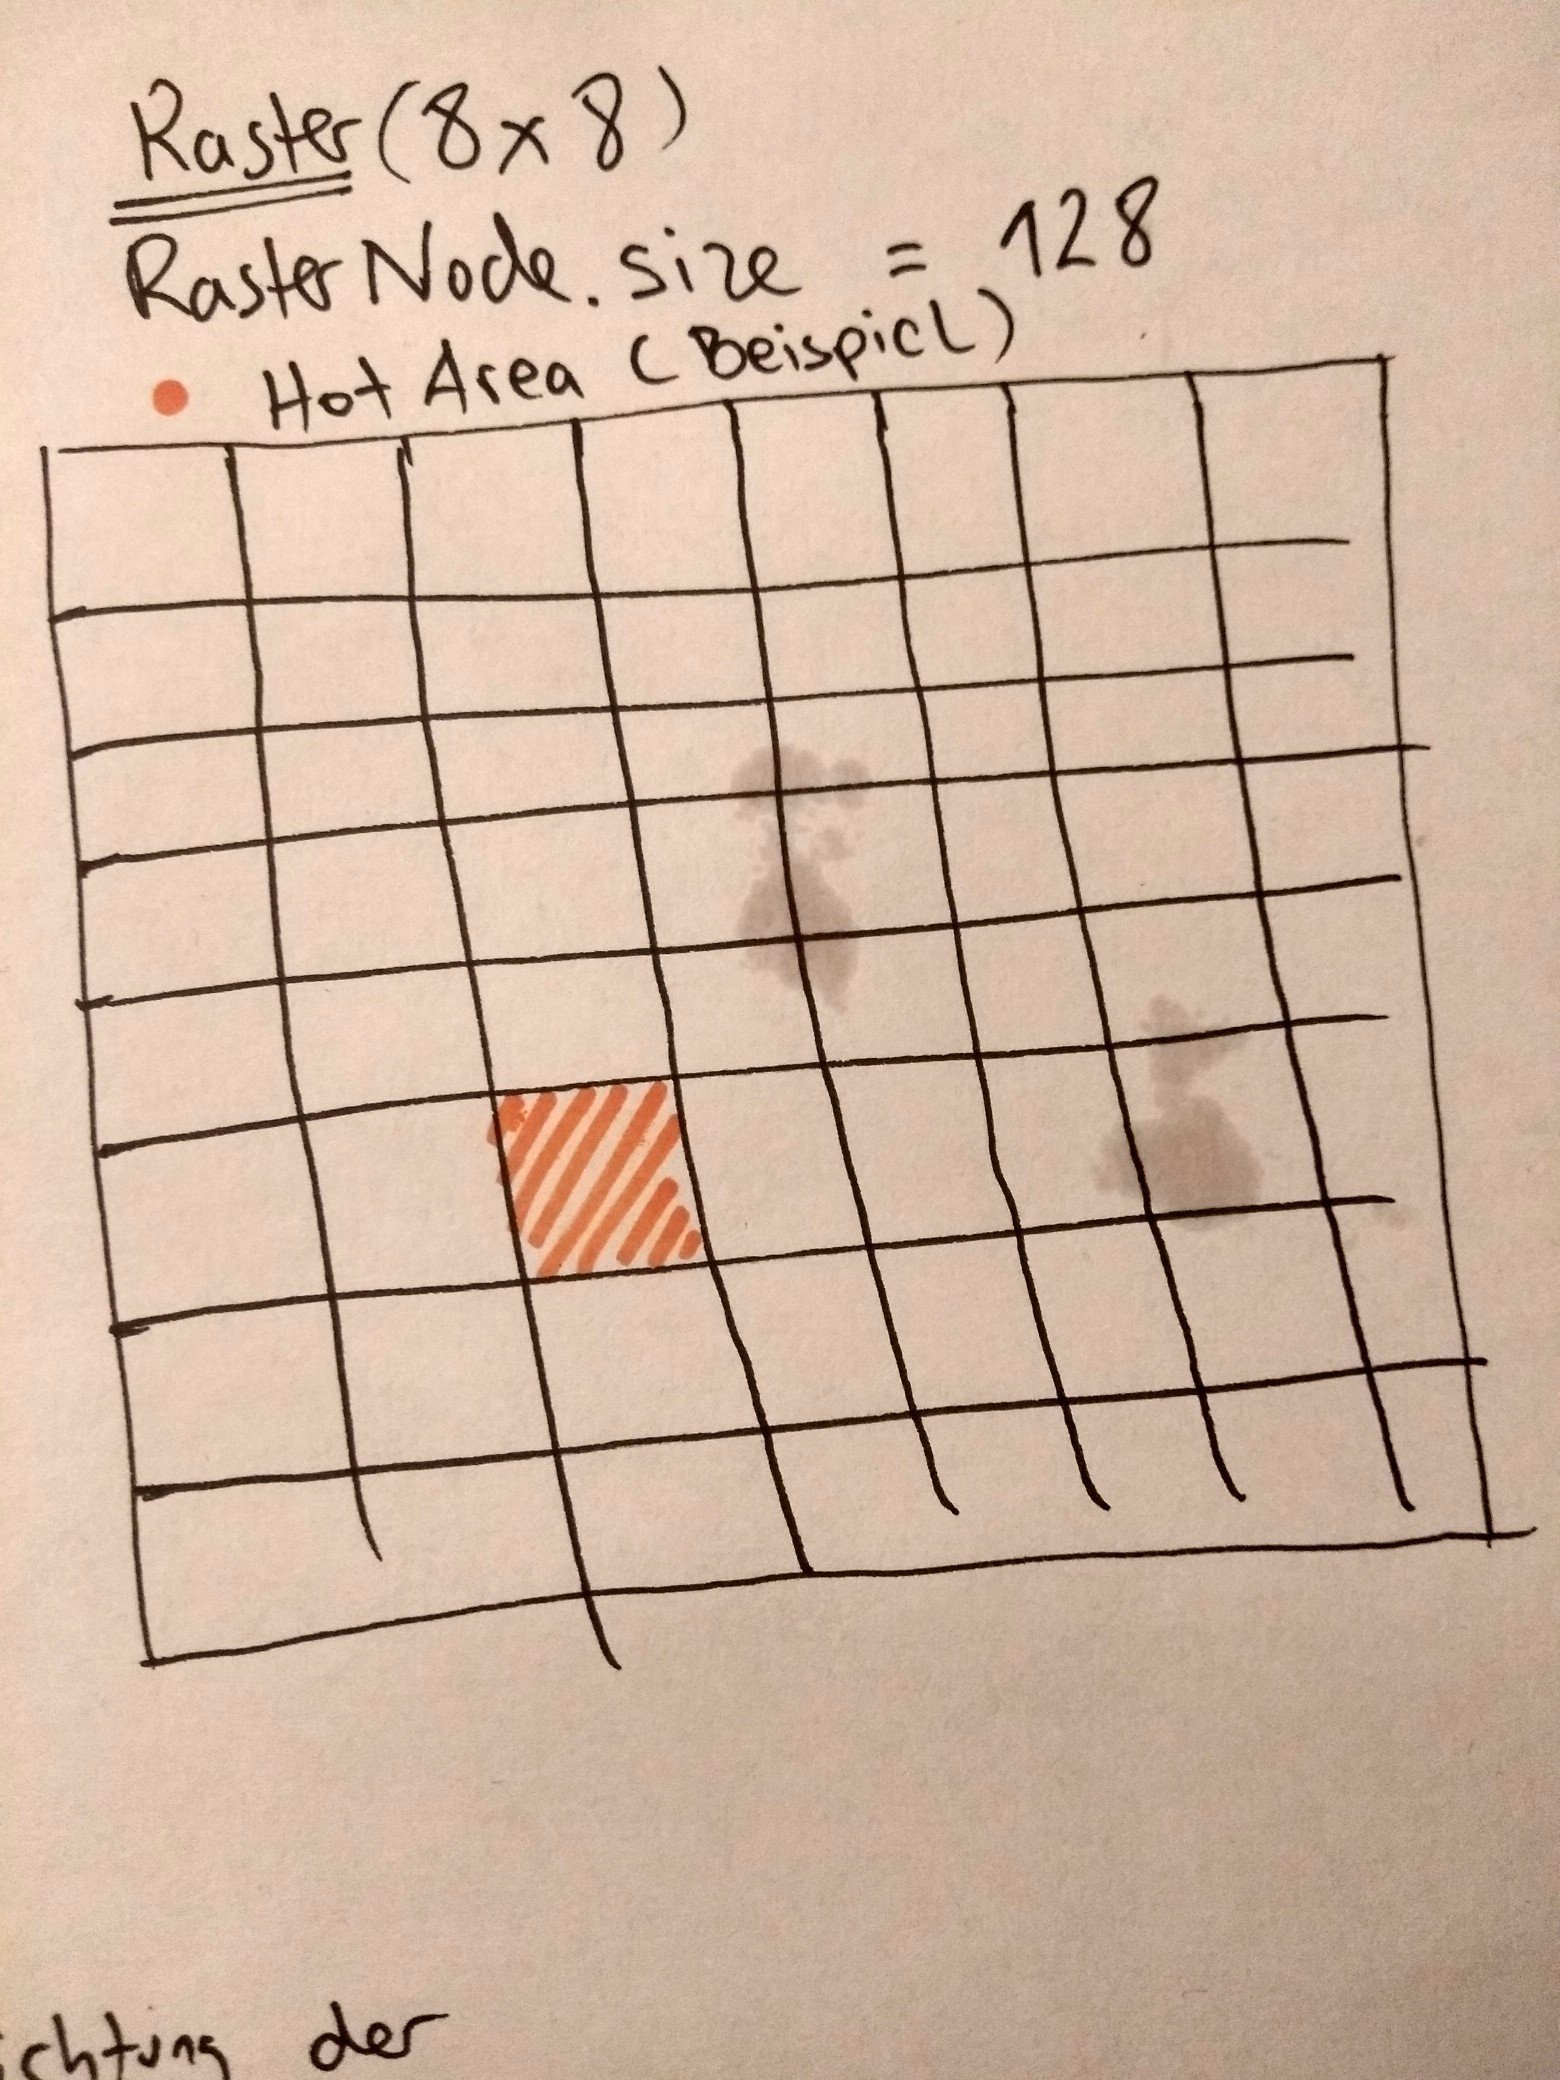 Raster (8 x 8)
RasterNode.size = 128
Hot Area (Beispiel)
ichtung der